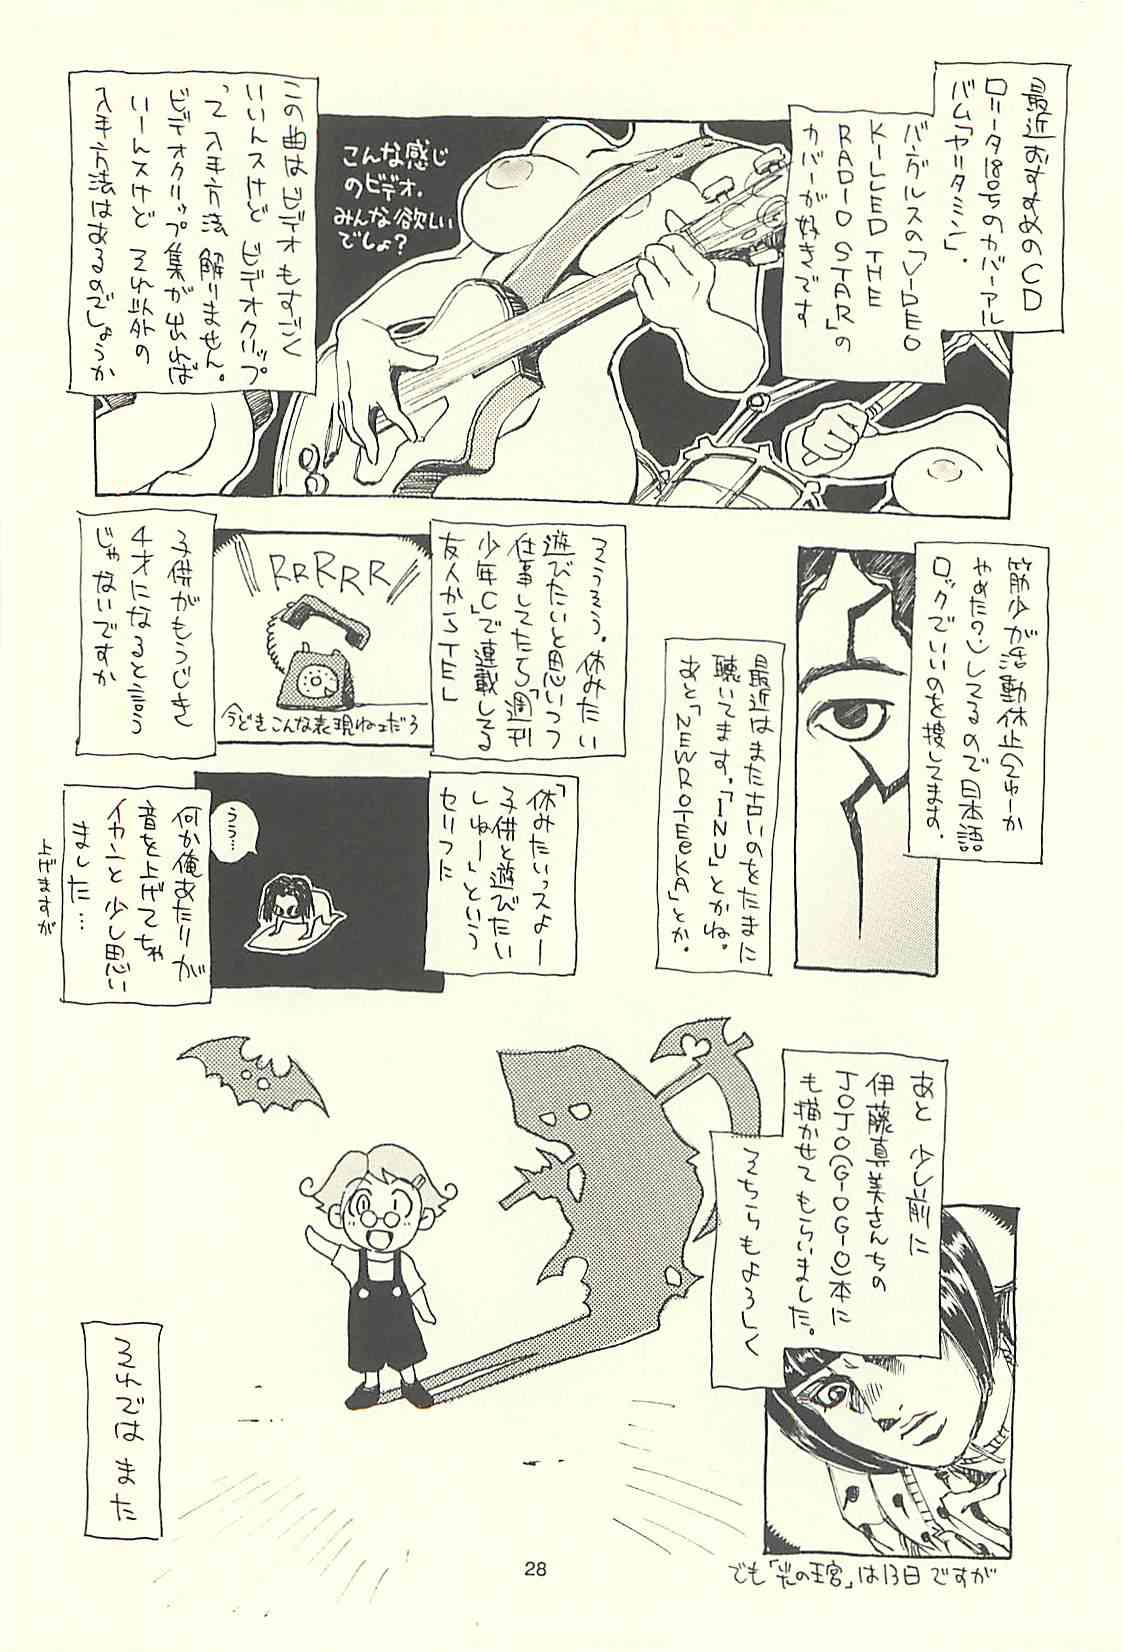 最近おすすめのCD
ロリータ18号のカバーアル
バム「ヤリタミン」。
バグルスの「VIDEO
KILLED THE
RADIO STAR」の
カバーが好きです
こんな感じ
のビデオ。
みんな欲しい
でしょ?
この曲はビデオもすごく
いいんスけど ビデオクリップ
って入手方法 解りません。
ビデオクリップ集が出れば
いーんスけど それ以外の
入手方法はあるのでしょうか
筋少が活動休止(つゅーか
やめたの?)してるので日本語
ロックでいいのを捜してます。
最近はまた古いのをたまに
聴いてます。「INU」とかね。
あと「NEWROTEeKA」とか。
そうそう。休みたい
遊びたいと思いつつ
仕事してたら「週刊
少年C」で連載してる
友人からTEL
RRRRR
今どきこんな表現ねェだろ
子供がもうじき
4才になると言う
じゃないですか
「休みたいっスよー
子供と遊びたい
しゅー」という
セリフに
うう…
何か俺あたりが
音を上げてちゃ
イカンと少し思い
ました…
上げますが
あと 少し前に
伊藤真美さんちの
JOJO(GIOGIO)本に
も描かせてもらいました。
そちらもよろしく
でも「光の王宮」は13日ですが
それでは また
28